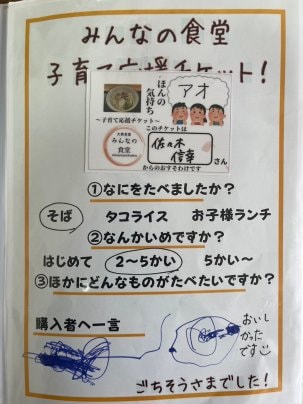 みんなの食堂
子育て応援チケット!
ほんの
気持ち
アオ
~子育て応援チケット~
このチケットは
みんなの
食堂
佐々木
信幸
さん
からのおすそわけです
①なにをたべましたか?
そば タコライス お子様ランチ
②なんかいめですか?
はじめて 2~5かい 5かい~
③ほかにどんなものがたべたいですか?
購入者へ一言
おいし
かった
です
ごちそうさまでした!